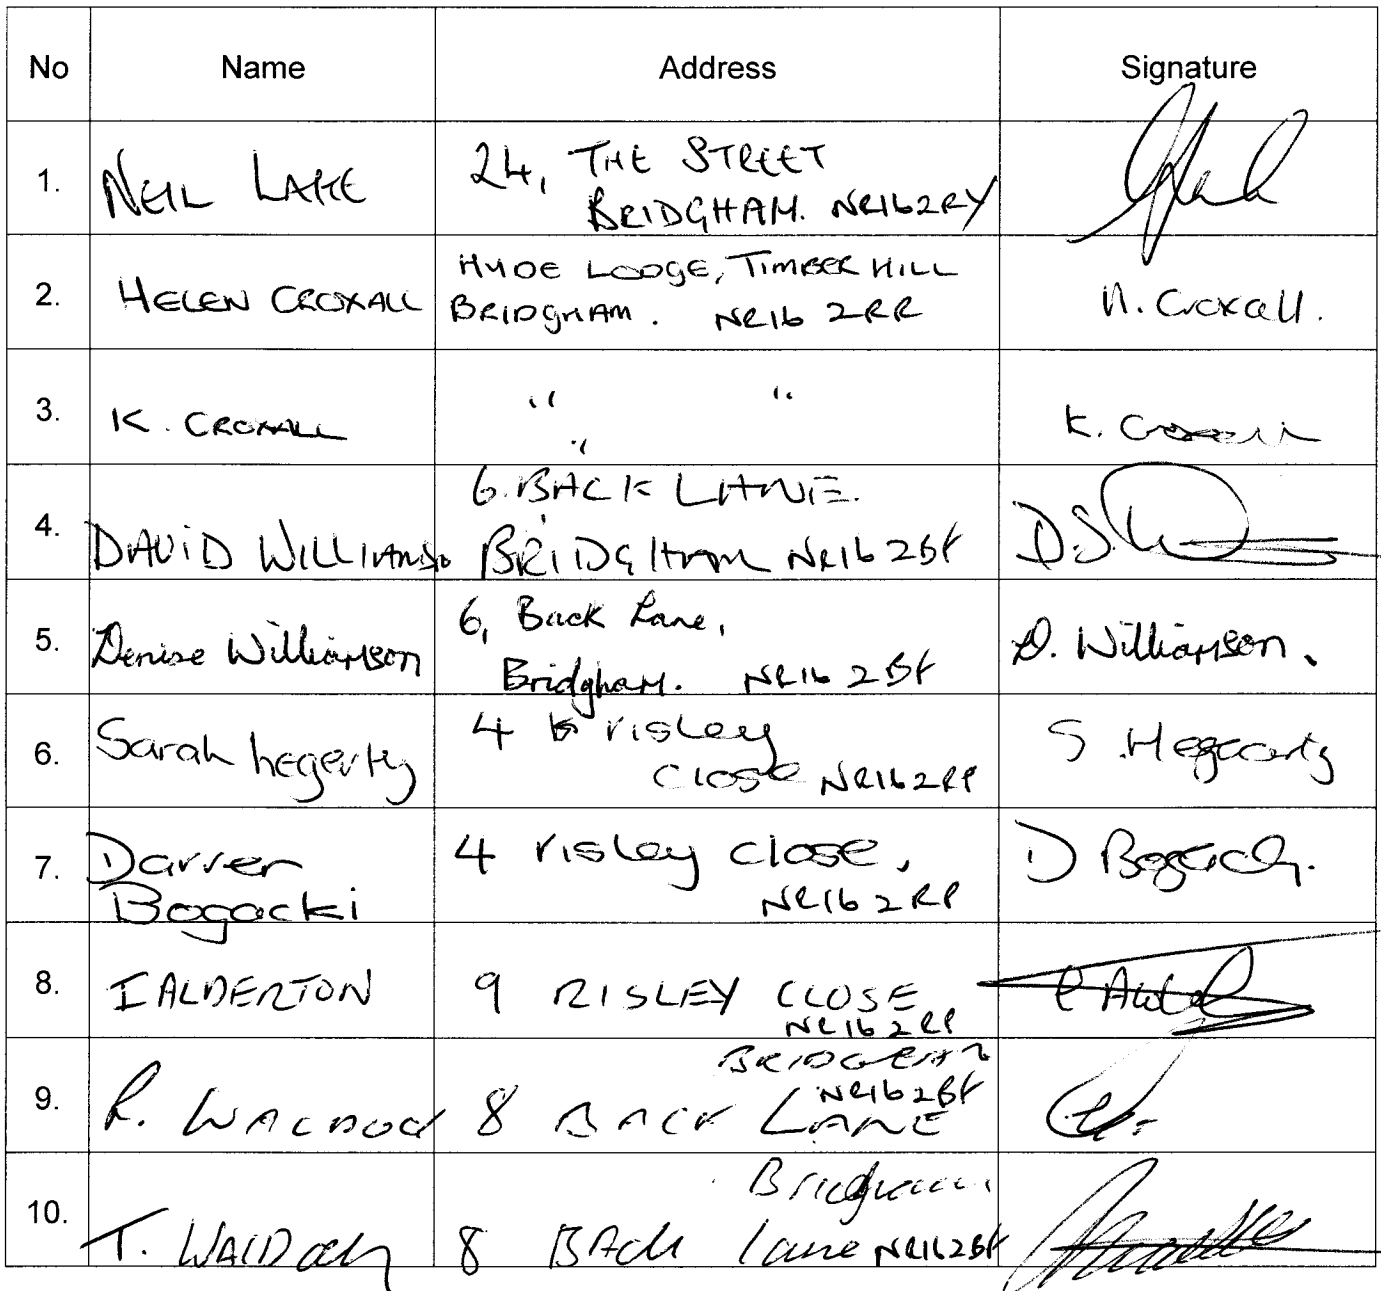 No Name Address Signature
1. NEIL LAKE 24, THE STREET
BRIDGHAM. NR16 2RY
2. HELEN CROXALL HYDE LODGE, TIMBER HILL
BRIDGHAM. NR16 2RR H. Croxall.
3. K. CROXALL " "
" K. Croxall
4. DAVID WILLIAMSO 6. BACK LANE.
BRIDGHAM NR16 2BF D.S.
5. Denise Williamson 6, Back Lane,
Bridgham. NR16 2BF D. Williamson.
6. Sarah hegerty 4 risley
close NR16 2RP S. Hegearty
7. Darren
Bogacki 4 risley close,
NR16 2RP D Bogacki.
8. I ALDERTON 9 RISLEY CLOSE
NR16 2RP
9. BRIDGHAM
NR16 2BF
R. 8 BACK LANE
10. Bridgham.
T. 8 BACK lane NR16 2BF